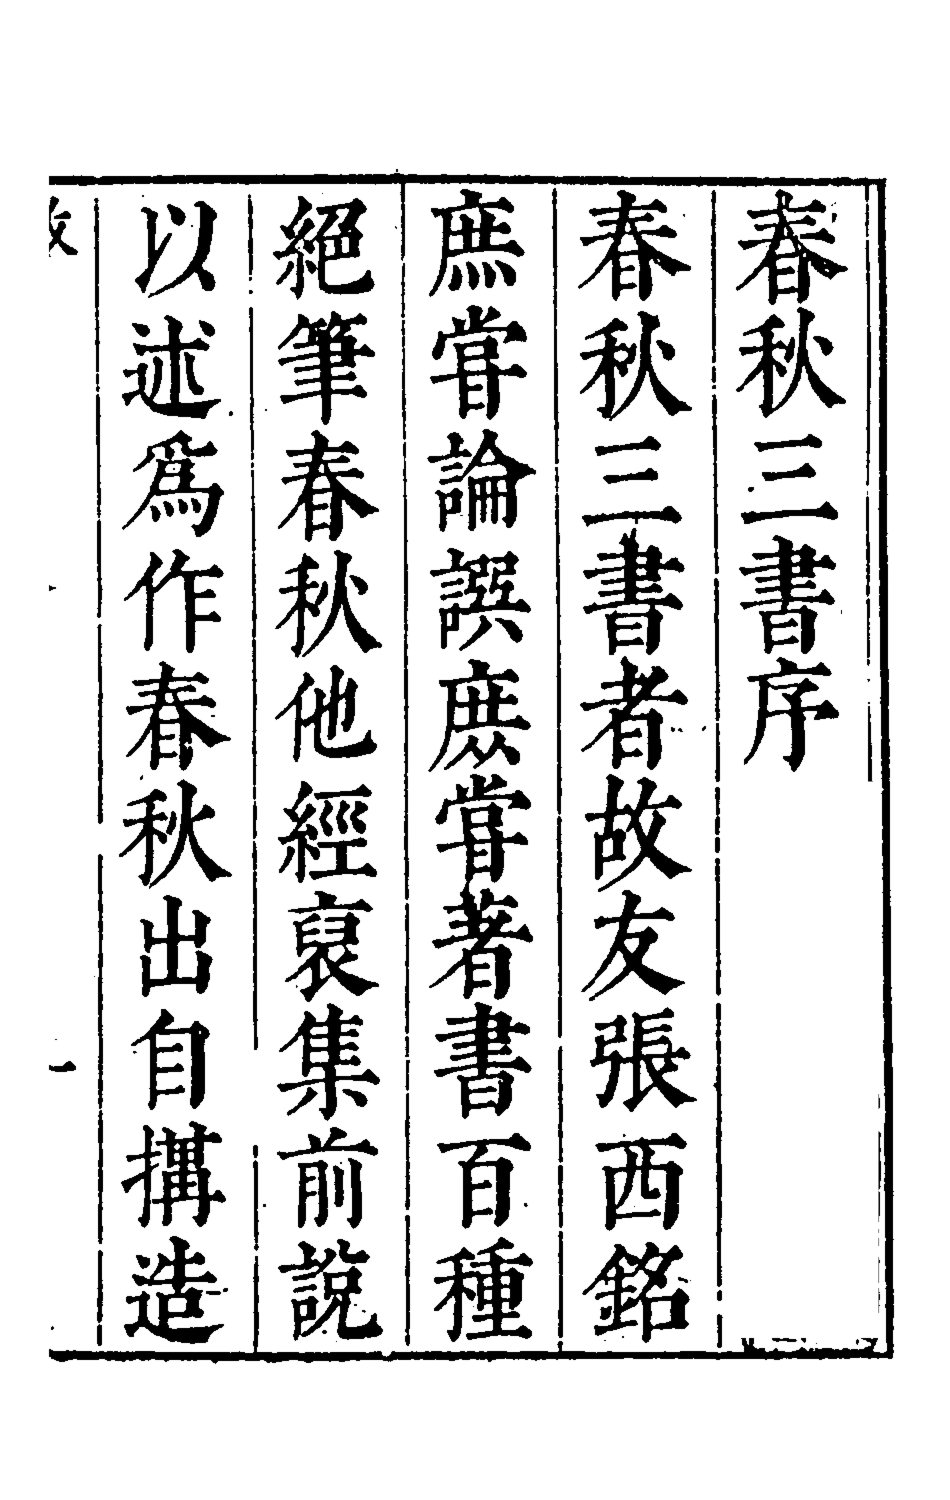 春秋三書序
春秋三書者故友張西銘
庶嘗論譔庻嘗著書百種
絕筆春秋他經裒集前說
以述爲作春秋出自搆造